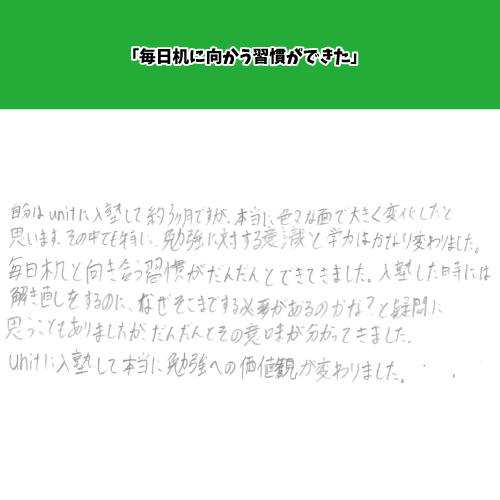 「毎日机に向かう習慣ができた」
自分はunitに入塾して約3ヶ月ですが、本当に色々な面で大きく変化したと
思います。その中でも特に、勉強に対する意識と学力はかなり変わりました。
毎日机と向き合う習慣がだんだんとできてきました。入塾した時には
解き直しをするのに、なぜそこまでする必要があるのかな?と疑問に
思うこともありましたが、だんだんとその意味が分かってきました。
unitに入塾して本当に勉強への価値観が変わりました。